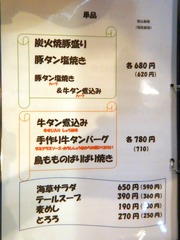 単品
炭火焼豚盛り
豚タン塩焼き
ハーフ
豚タン塩焼き
&牛タン煮込み
ハーフ
各680円
(620円)
牛タン煮込み
手作り牛タンバーグ
鳥もものぱりぱり焼き
各780円
(710)
海草サラダ 650円(590円)
テールスープ 390円(360円)
麦めし 190円(180円)
とろろ 270円(250円)